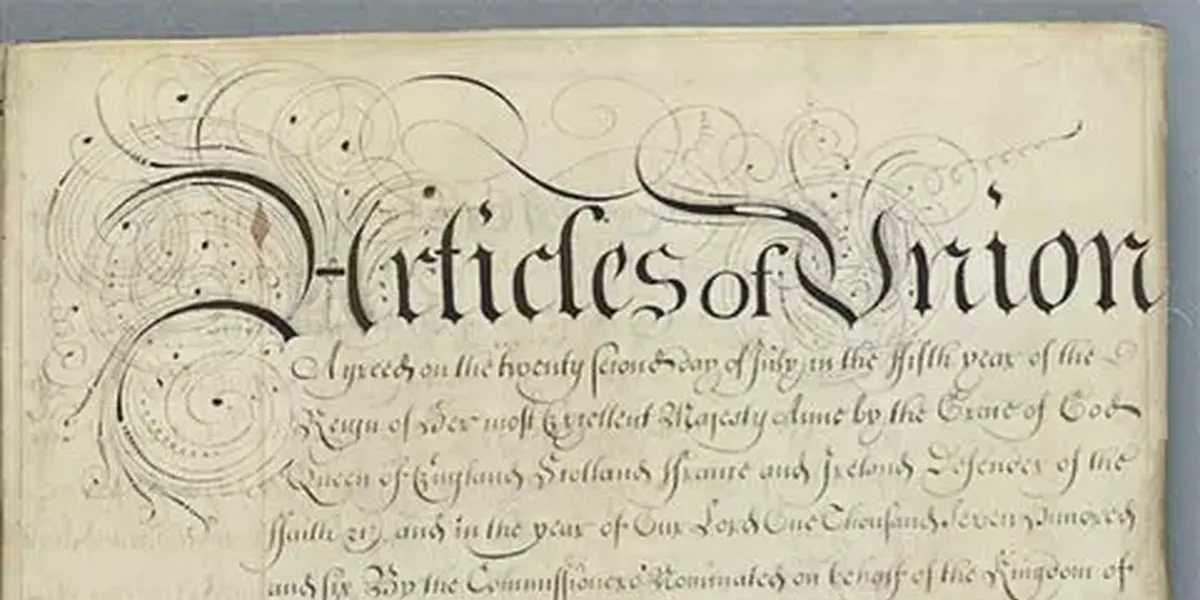 Articles of Union
Agreed on the twenty second day of July in the ffifth year of the
Reign of Her most Excellent Majesty Anne by the Grace of God
Queen of England Scotland ffrance and Ireland Defender of the
ffaith &c and in the year of Our Lord One Thousand Seven Hundred
and six By the Commissioners Nominated on behalf of the Kingdom of